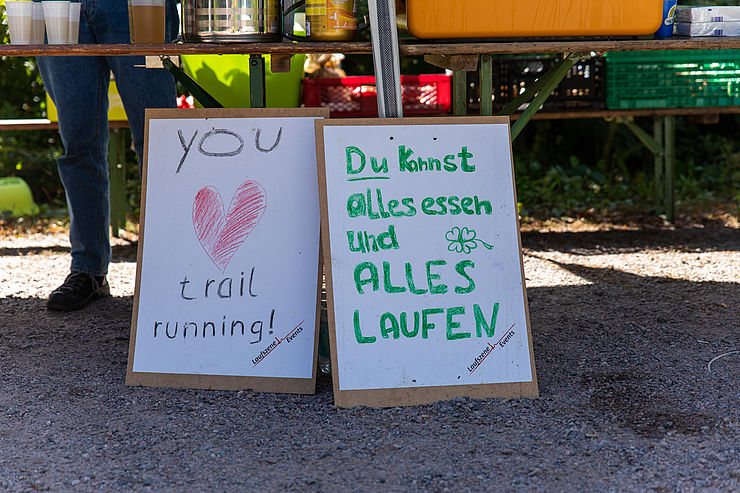 YOU
trail
running!
Laufszene
Events
Du Kannst
alles essen
und
ALLES
LAUFEN
Laufszene
Events